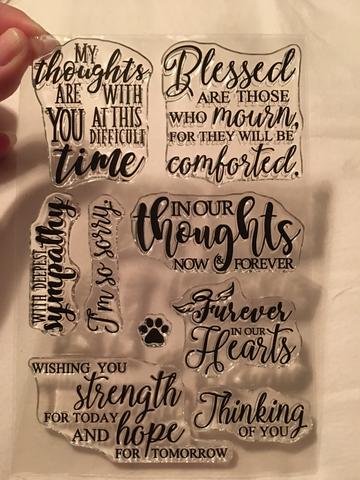 MY
thoughts
ARE WITH
YOU AT THIS
DIFFICULT
time
Blessed
ARE THOSE
WHO mourn,
FOR THEY WILL BE
comforted.
WITH DEEPEST
sympathy
I'm so sorry.
IN OUR
thoughts
NOW & FOREVER
Furever
IN OUR
Hearts
WISHING YOU
strength
FOR TODAY
AND hope
FOR TOMORROW
Thinking
OF YOU